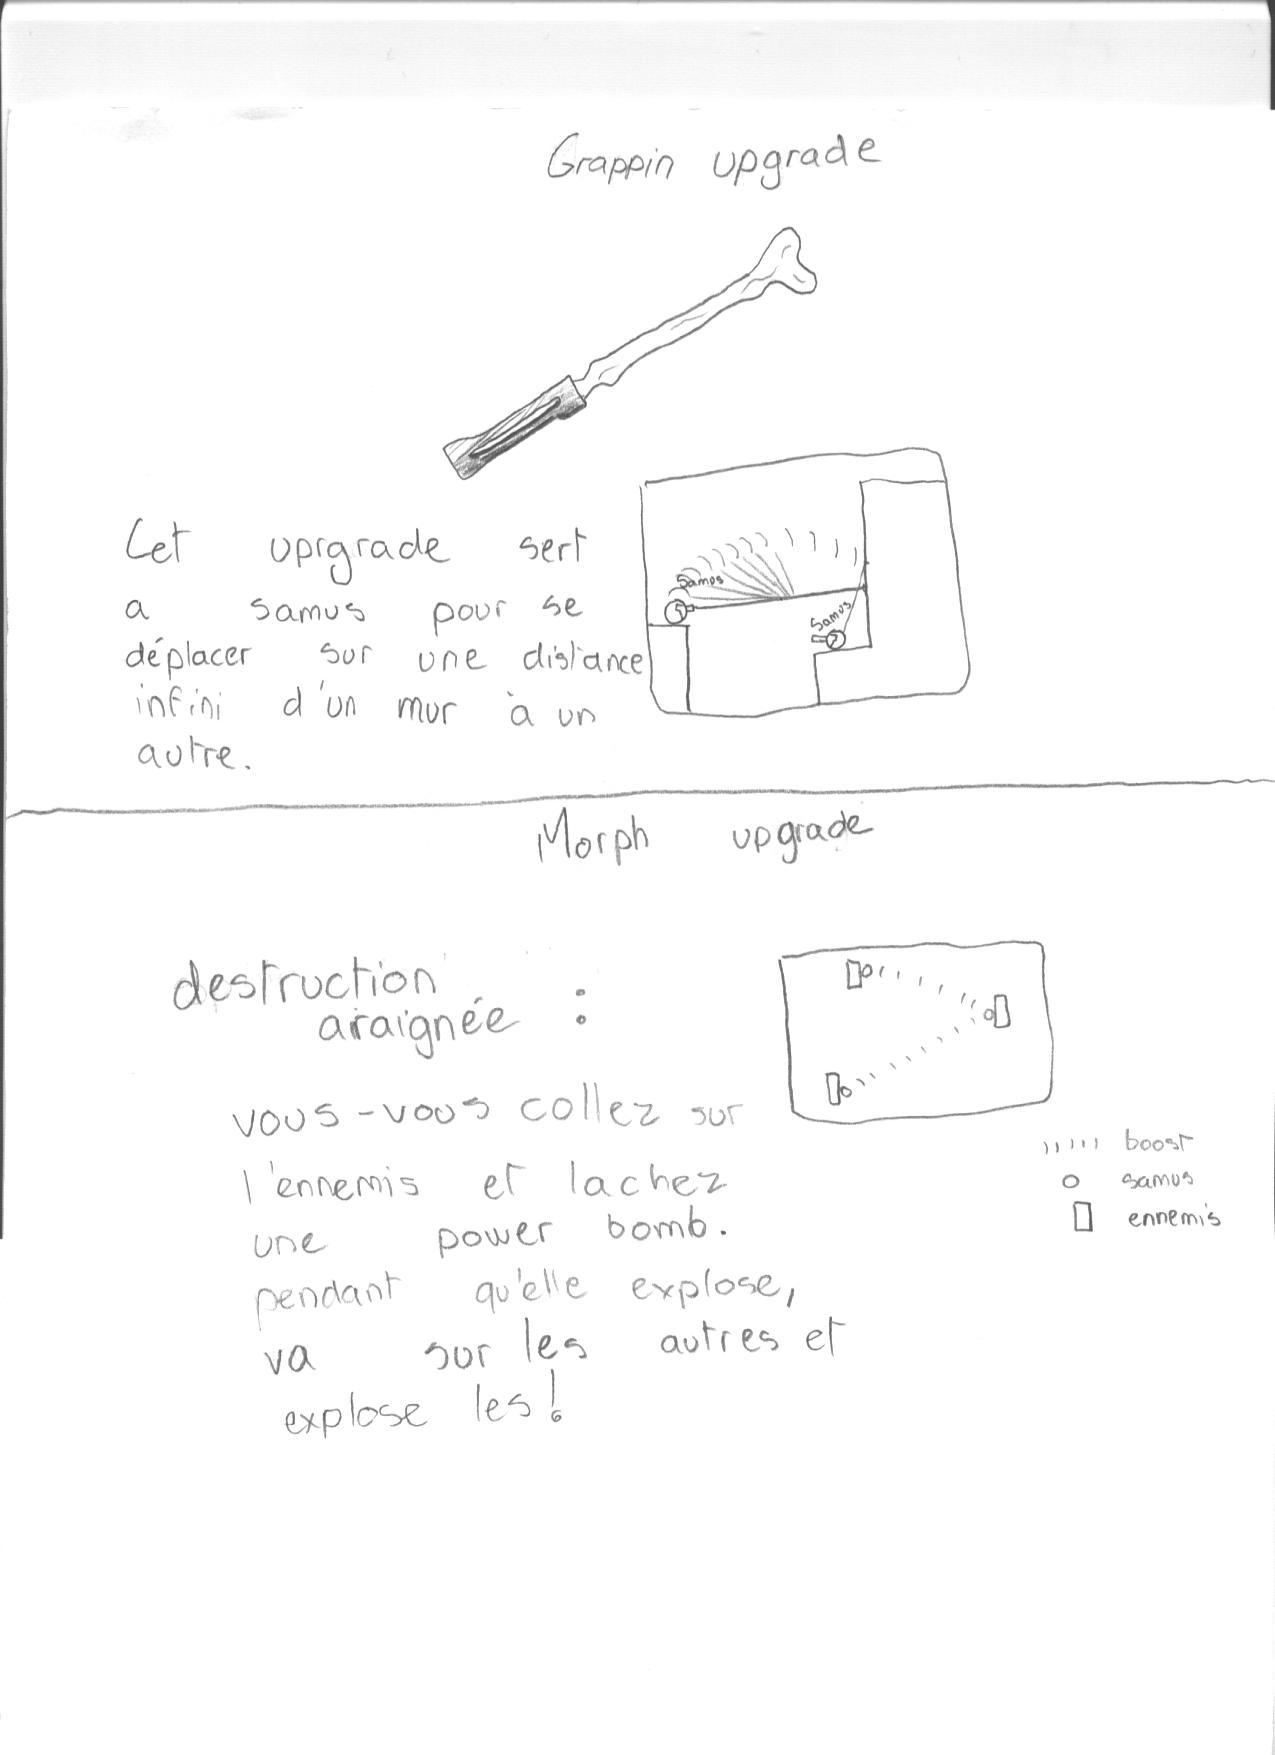 Grappin upgrade
Cet uprgrade sert
a samus pour se
déplacer sur une distance
infini d'un mur à un
autre.
Samus
Samus
Morph upgrade
destruction
araignée :
vous-vous collez sur
l'ennemis et lachez
une power bomb.
pendant qu'elle explose,
va sur les autres et
explose les!
boost
samus
ennemis